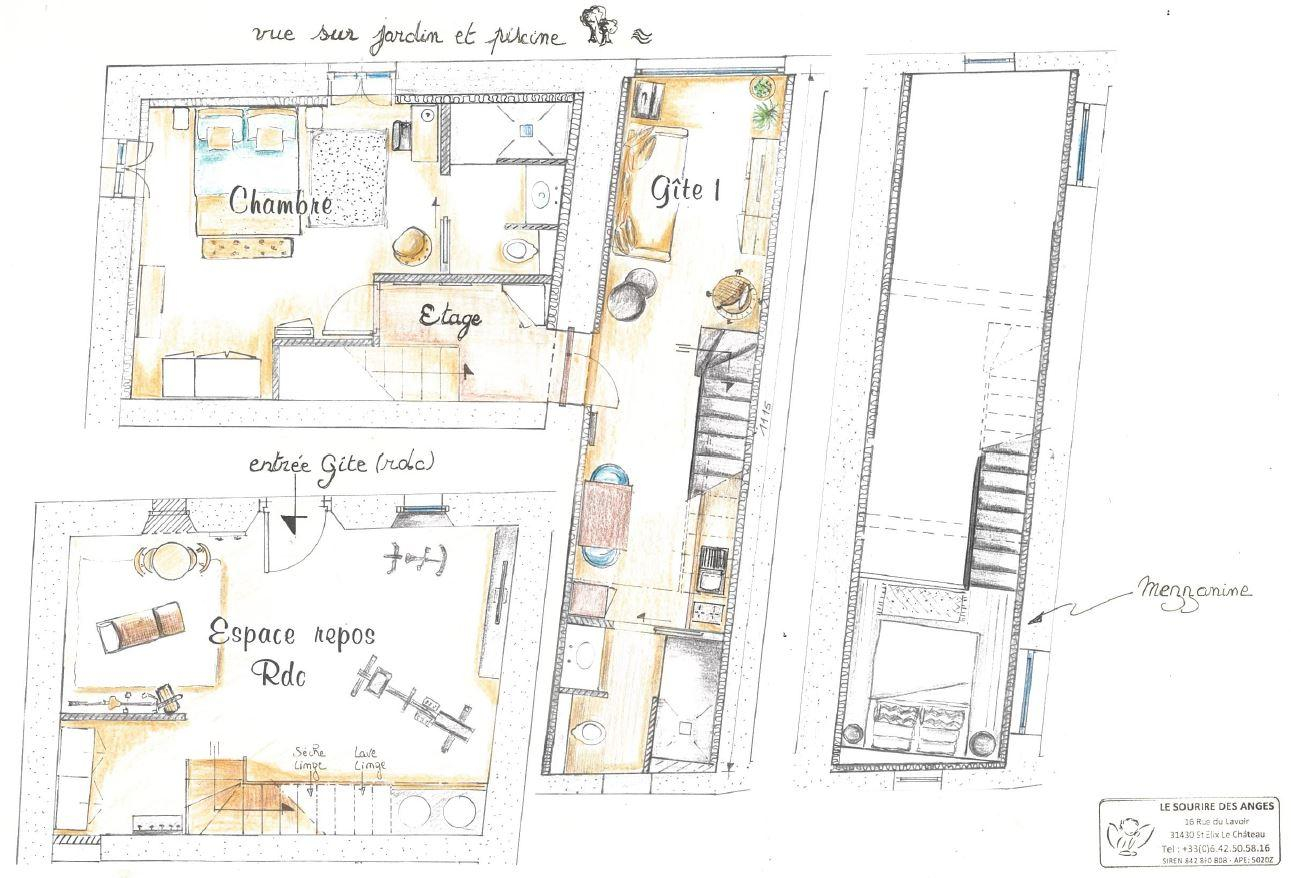 vue sur jardin et piscine
Chambre
Gîte 1
Etage
1115
entrée Gîte (rdc)
Espace repos
Rdc
Sèche
Linge
Lave
Linge
Mezzanine
LE SOURIRE DES ANGES
16 Rue du Lavoir
31430 St Elix Le Château
Tel : +33(0)6.42.50.58.16
SIREN 842 860 808 - APE: 5020Z